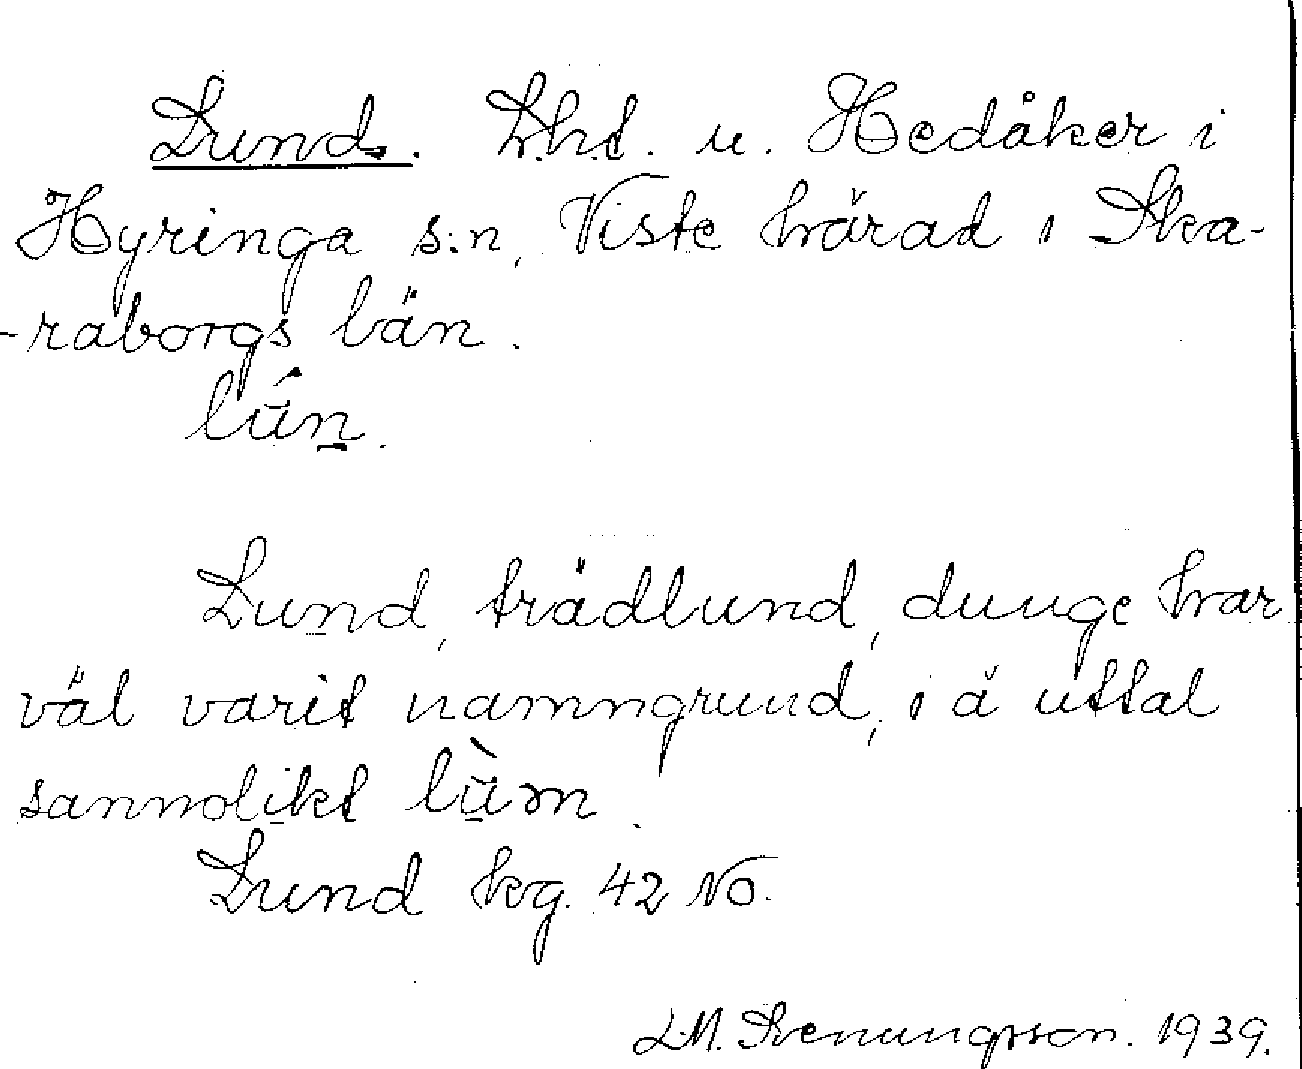 Lund. L.h.t. u. Hedåker i
Hyringa s:n, Viste härad i Ska-
-raborgs län.
lún.
Lund, trädlund, dunge har
väl varit namngrund, i ä uttal
sannolikt lùm.
Lund kg. 42 NO.
L.M. Svenungsson. 1939.